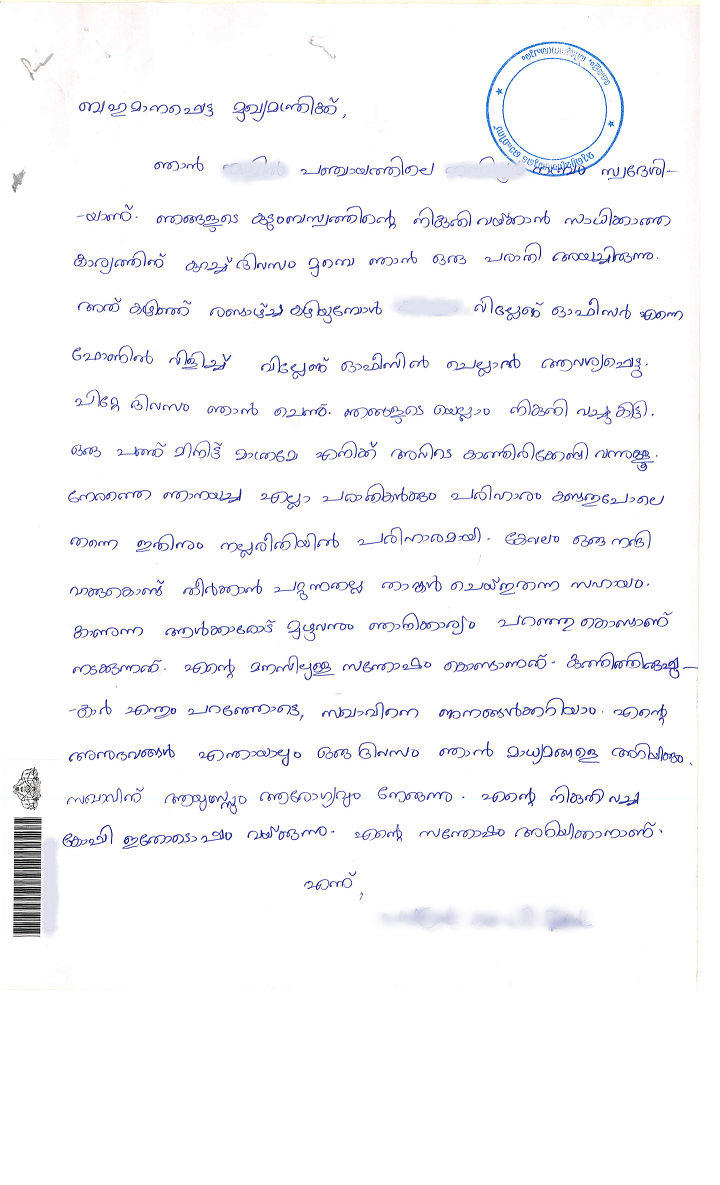 ബഹുമാനപ്പെട്ട മുഖ്യമന്ത്രിക്ക്,
ഞാൻ പഞ്ചായത്തിലെ സ്വദേശി-
-യാണ്. ഞങ്ങളുടെ കുടുംബസ്വത്തിന്റെ നികുതി വയ്ക്കാൻ സാധിക്കാത്ത
കാര്യത്തിന് കുറച്ച് ദിവസം മുമ്പെ ഞാൻ ഒരു പരാതി അയച്ചിരുന്നു.
അത് കഴിഞ്ഞ് രണ്ടാഴ്ച്ച കഴിയുമ്പോൾ വില്ലേജ് ഓഫീസർ എന്നെ
ഫോണിൽ വിളിച്ച് വില്ലേജ് ഓഫീസിൽ ചെല്ലാൻ ആവശ്യപ്പെട്ടു.
പിറ്റേ ദിവസം ഞാൻ ചെന്നു. ഞങ്ങളുടെ യെല്ലാം നികുതി വച്ചു കിട്ടി.
ഒരു പത്ത് മിനിട്ട് മാത്രമേ എനിക്ക് അവിടെ കാത്തിരിക്കേണ്ടി വന്നുള്ളൂ.
നേരത്തെ ഞാനയച്ച എല്ലാ പരാതികൾക്കും പരിഹാരം കണ്ടതുപോലെ
തന്നെ ഇതിനും നല്ലരീതിയിൽ പരിഹാരമായി. കേവലം ഒരു നന്ദി
വാക്കുകൊണ്ട് തീർക്കാൻ പറ്റുന്നതല്ല താങ്കൾ ചെയ്തുതന്ന സഹായം.
കാണുന്ന ആൾക്കാരോട് മുഴുവനും ഞാനിക്കാര്യം പറഞ്ഞു കൊണ്ടാണ്
നടക്കുന്നത്. എന്റെ മനസിലുള്ള സന്തോഷം കൊണ്ടാണത്. കുത്തിത്തിരുപ്പു-
-കാർ എന്തും പറഞ്ഞോട്ടെ, സഖാവിനെ ജനങ്ങൾക്കറിയാം. എന്റെ
അനുഭവങ്ങൾ എന്തായാലും ഒരു ദിവസം ഞാൻ മാധ്യമങ്ങളെ അറിയിക്കും.
സഖാവിന് ആയുസ്സും ആരോഗ്യവും നേരുന്നു. എന്റെ നികുതി വച്ച
കോപ്പി ഇതോടൊപ്പം വയ്ക്കുന്നു. എന്റെ സന്തോഷം അറിയിക്കാനാണ്.
എന്ന്,